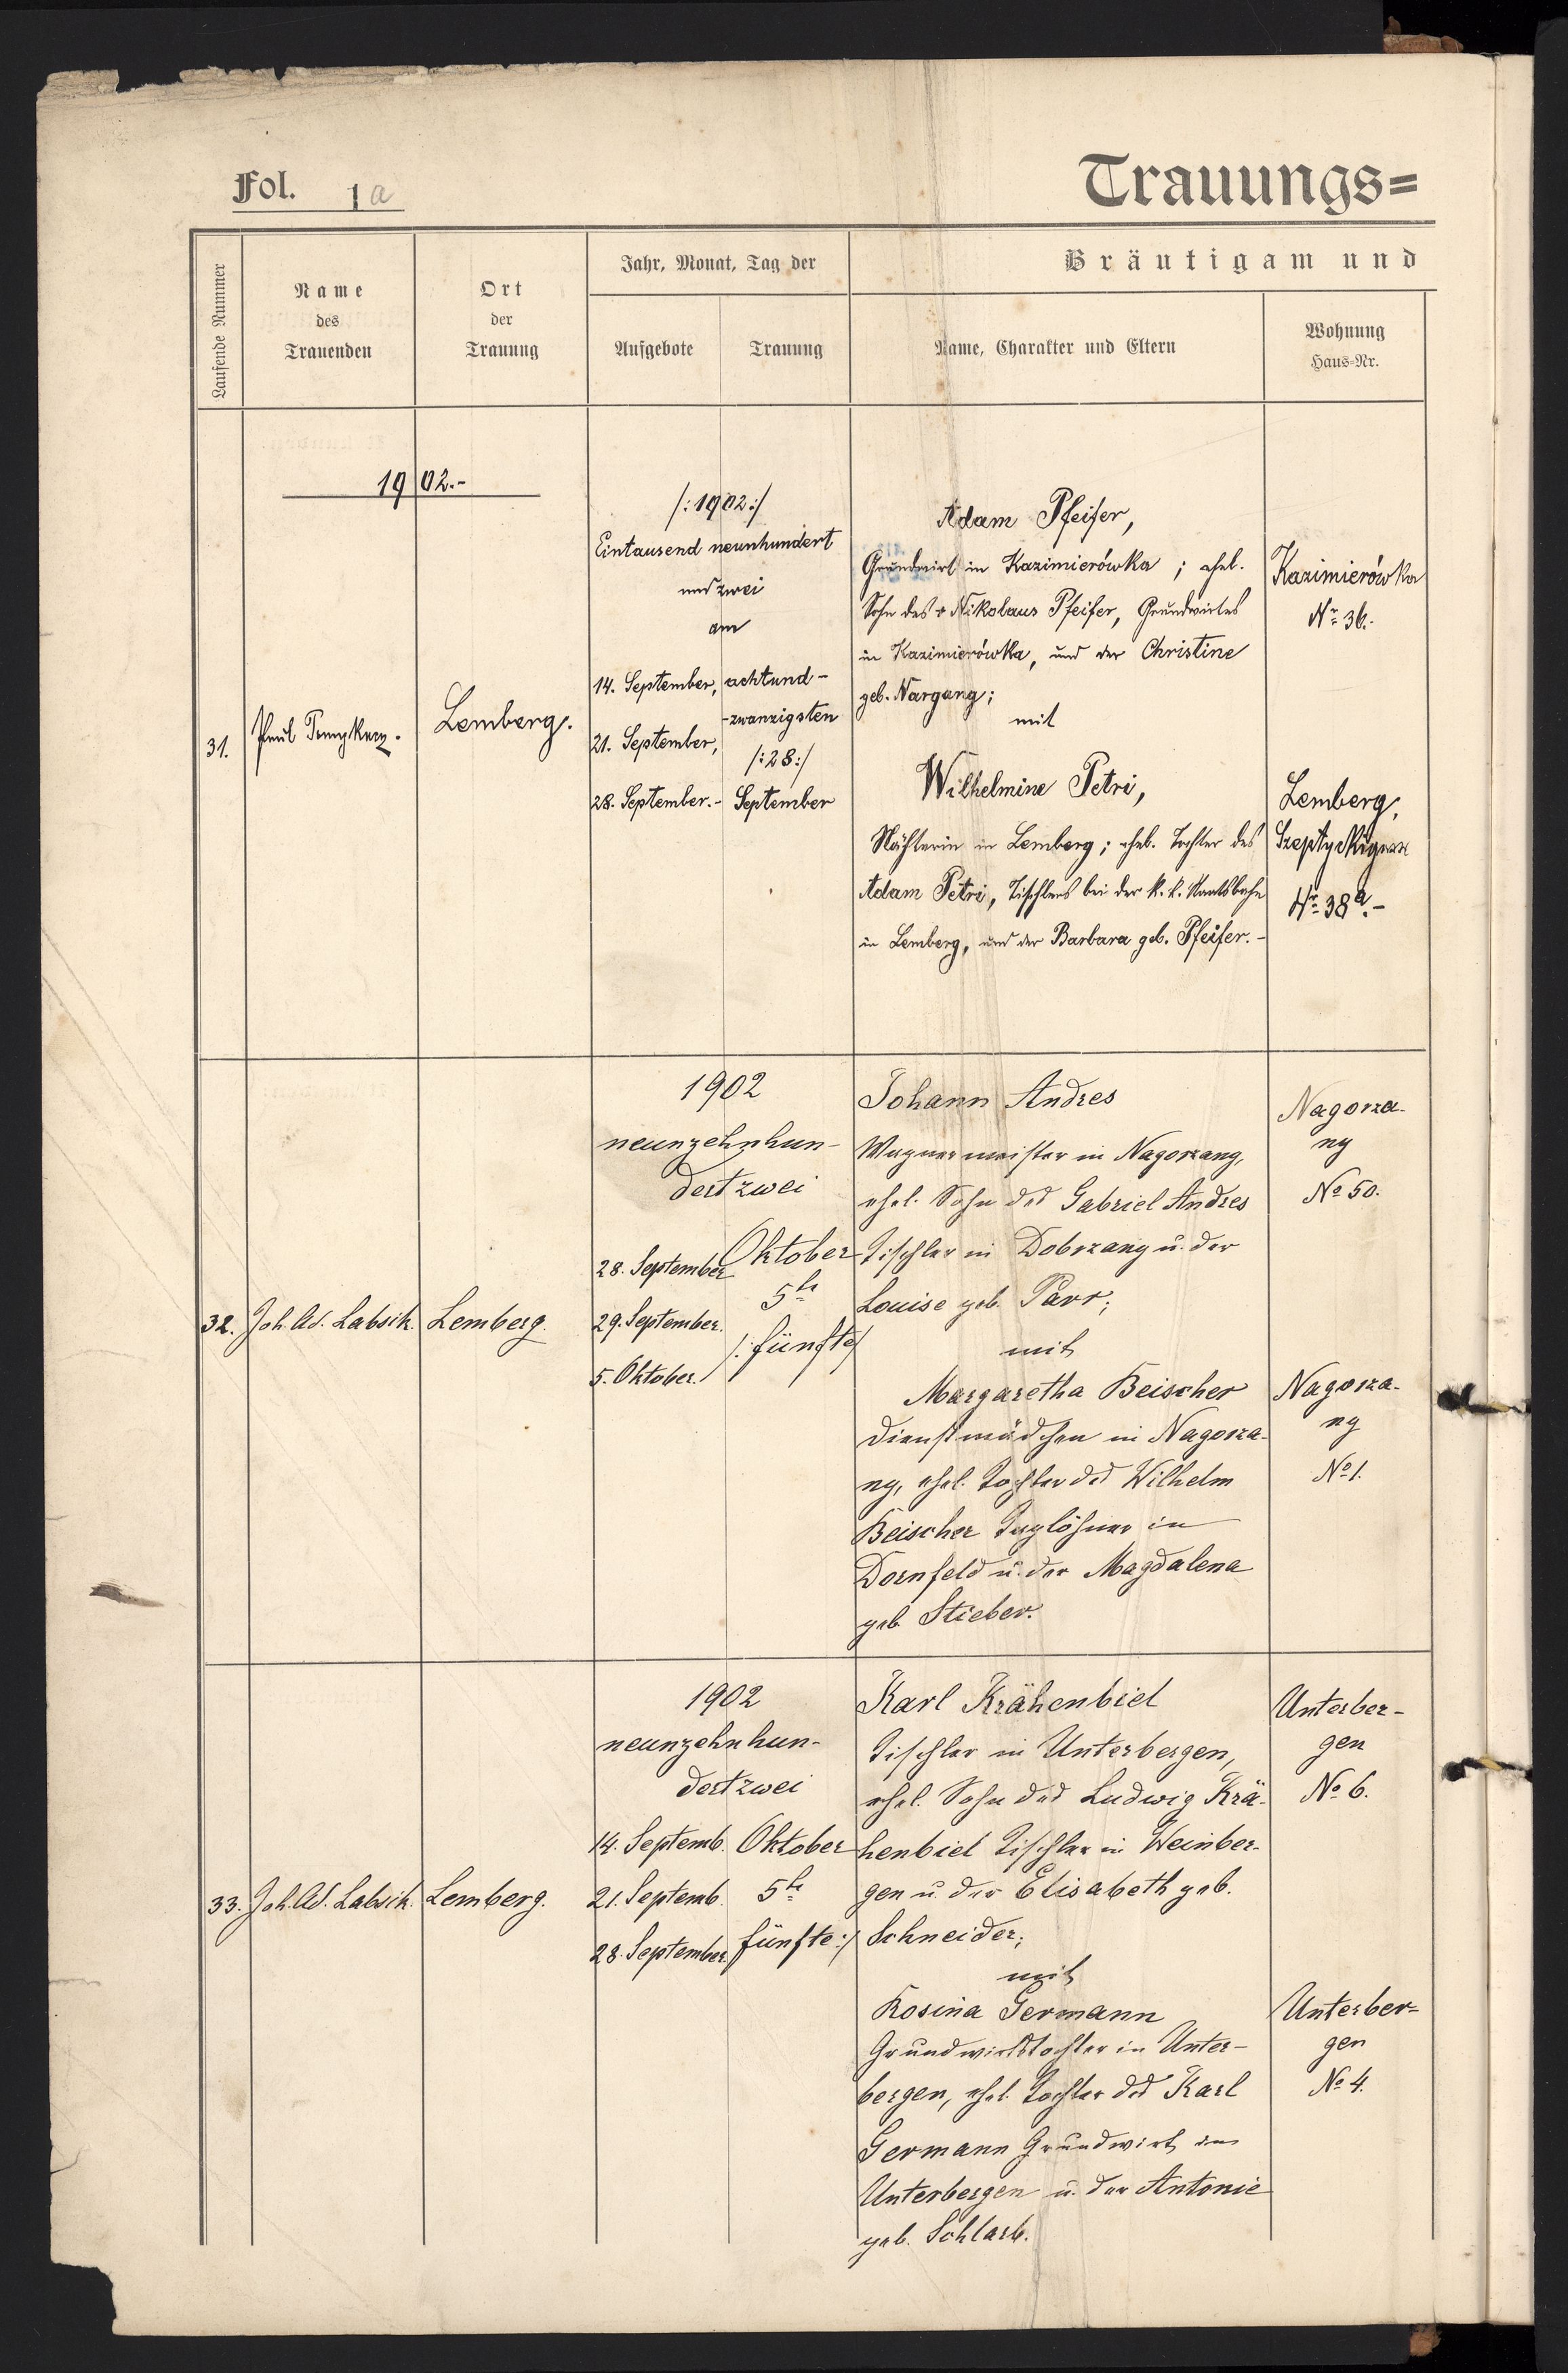 Fol. 1a
Trauungs=
Laufende Nummer
Name
des
Trauenden
Ort
der
Trauung
Jahr, Monat, Tag der
Aufgebote
Trauung
Bräutigam und
Name, Charakter und Eltern
Wohnung
Haus-Nr.
1902.-
31.
Lemberg.
/:1902:/
Eintausend neunhundert
und zwei
am
14. September,
21. September,
28. September.-
achtund-
-zwanzigsten
/:28:/
September
Adam Pfeifer,
Grundwirt in Kazimierówka; ehel.
Sohn des + Nikolaus Pfeifer, Grundwirtes
in Kazimierówka, und der Christine
geb. Nargang;
mit
Wilhelmine Petri,
Nähterin in Lemberg; ehel. Tochter des
Adam Petri, Tischlers bei der k. k. Staatsbahn
in Lemberg, und der Barbara geb. Pfeifer.-
Kazimierówka
Nr. 36.
Lemberg,
Nr. 38a.-
32.
Joh. Ad. Labsik.
Lemberg.
1902
neunzehnhun-
dertzwei
28. September
29. September.
5. Oktober.
Oktober
5te
/:fünfte/
Johann Andres
Wagnermeister in Nagorzany,
ehel. Sohn des Gabriel Andres
Tischler in Dobrzany u. der
Louise geb. Parr;
mit
Margaretha Beischer
Dienstmädchen in Nagorza-
ny, ehel. Tochter des Wilhelm
Beischer Taglöhner in
Dornfeld u. der Magdalena
geb. Stieber.
Nagorza-
ny
No 50.
Nagorza-
ny
No 1.
33.
Joh. Ad. Labsik.
Lemberg.
1902
neunzehnhun-
dertzwei
14. Septemb.
21. Septemb.
28. September
Oktober
5te
fünfte:/
Karl Krähenbiel
Tischler in Unterbergen,
ehel. Sohn des Ludwig Krä-
henbiel Tischler in Weinber-
gen u. der Elisabeth geb.
Schneider;
mit
Rosina Germann
Grundwirtstochter in Unter-
bergen, ehel. Tochter des Karl
Germann Grundwirt in
Unterbergen u. der Antonie
geb. Schlarb.
Unterber-
gen
No 6.
Unterber=
gen
No 4.